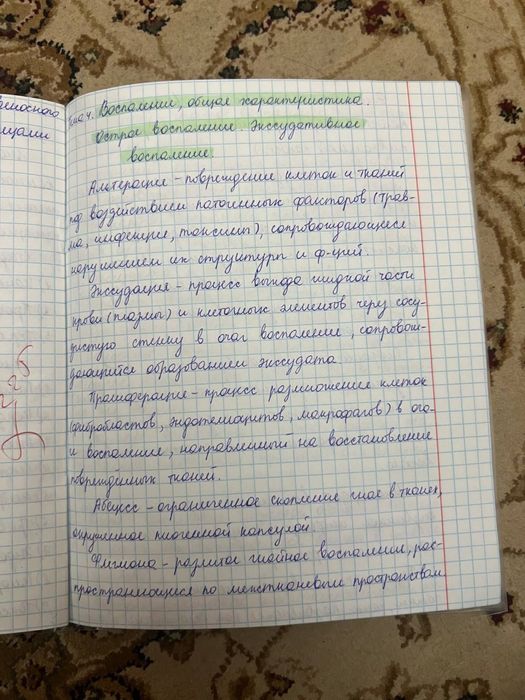 еносного
ицами
Тема 4. Воспаление, общая характеристика.
Острое воспаление. Экссудативное
воспаление.
Альтерация - повреждение клеток и тканей
под воздействием патогенных факторов (трав-
ма, инфекция, токсины), сопровождающееся
нарушением их структуры и ф-ций.
Экссудация - процесс выхода жидкой части
крови (плазмы) и клеточных элементов через сосу-
дистую стенку в очаг воспаления, сопровож-
дающийся образованием экссудата
Пролиферация - процесс размножения клеток
(фибробластов, эндотелиоцитов, макрофагов) в оча-
ге воспаления, направленный на восстановление
повреждённых тканей.
Абсцесс - ограниченное скопление гноя в тканях,
окружённое пиогенной капсулой.
Флегмона - разлитое гнойное воспаление, рас-
пространяющееся по межтканевым пространствам.